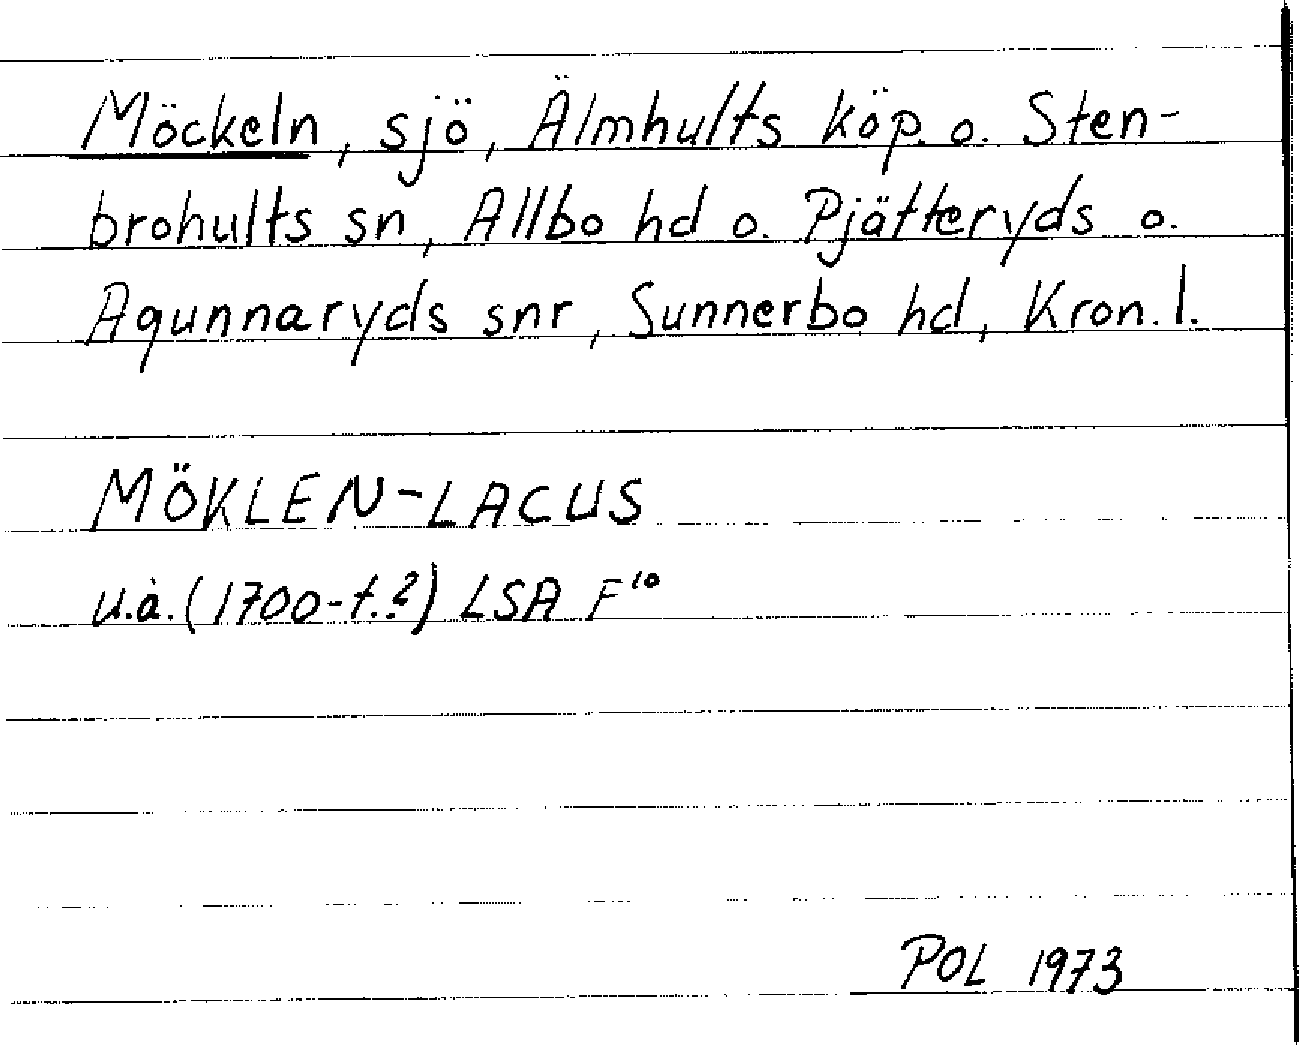 Möckeln, sjö, Älmhults köp. o. Sten-
brohults sn, Allbo hd o. Pjätteryds o.
Agunnaryds snr, Sunnerbo hd, Kron. l.
MÖKLEN-LACUS
u.å. (1700-t.?) LSA F¹⁰
POL 1973